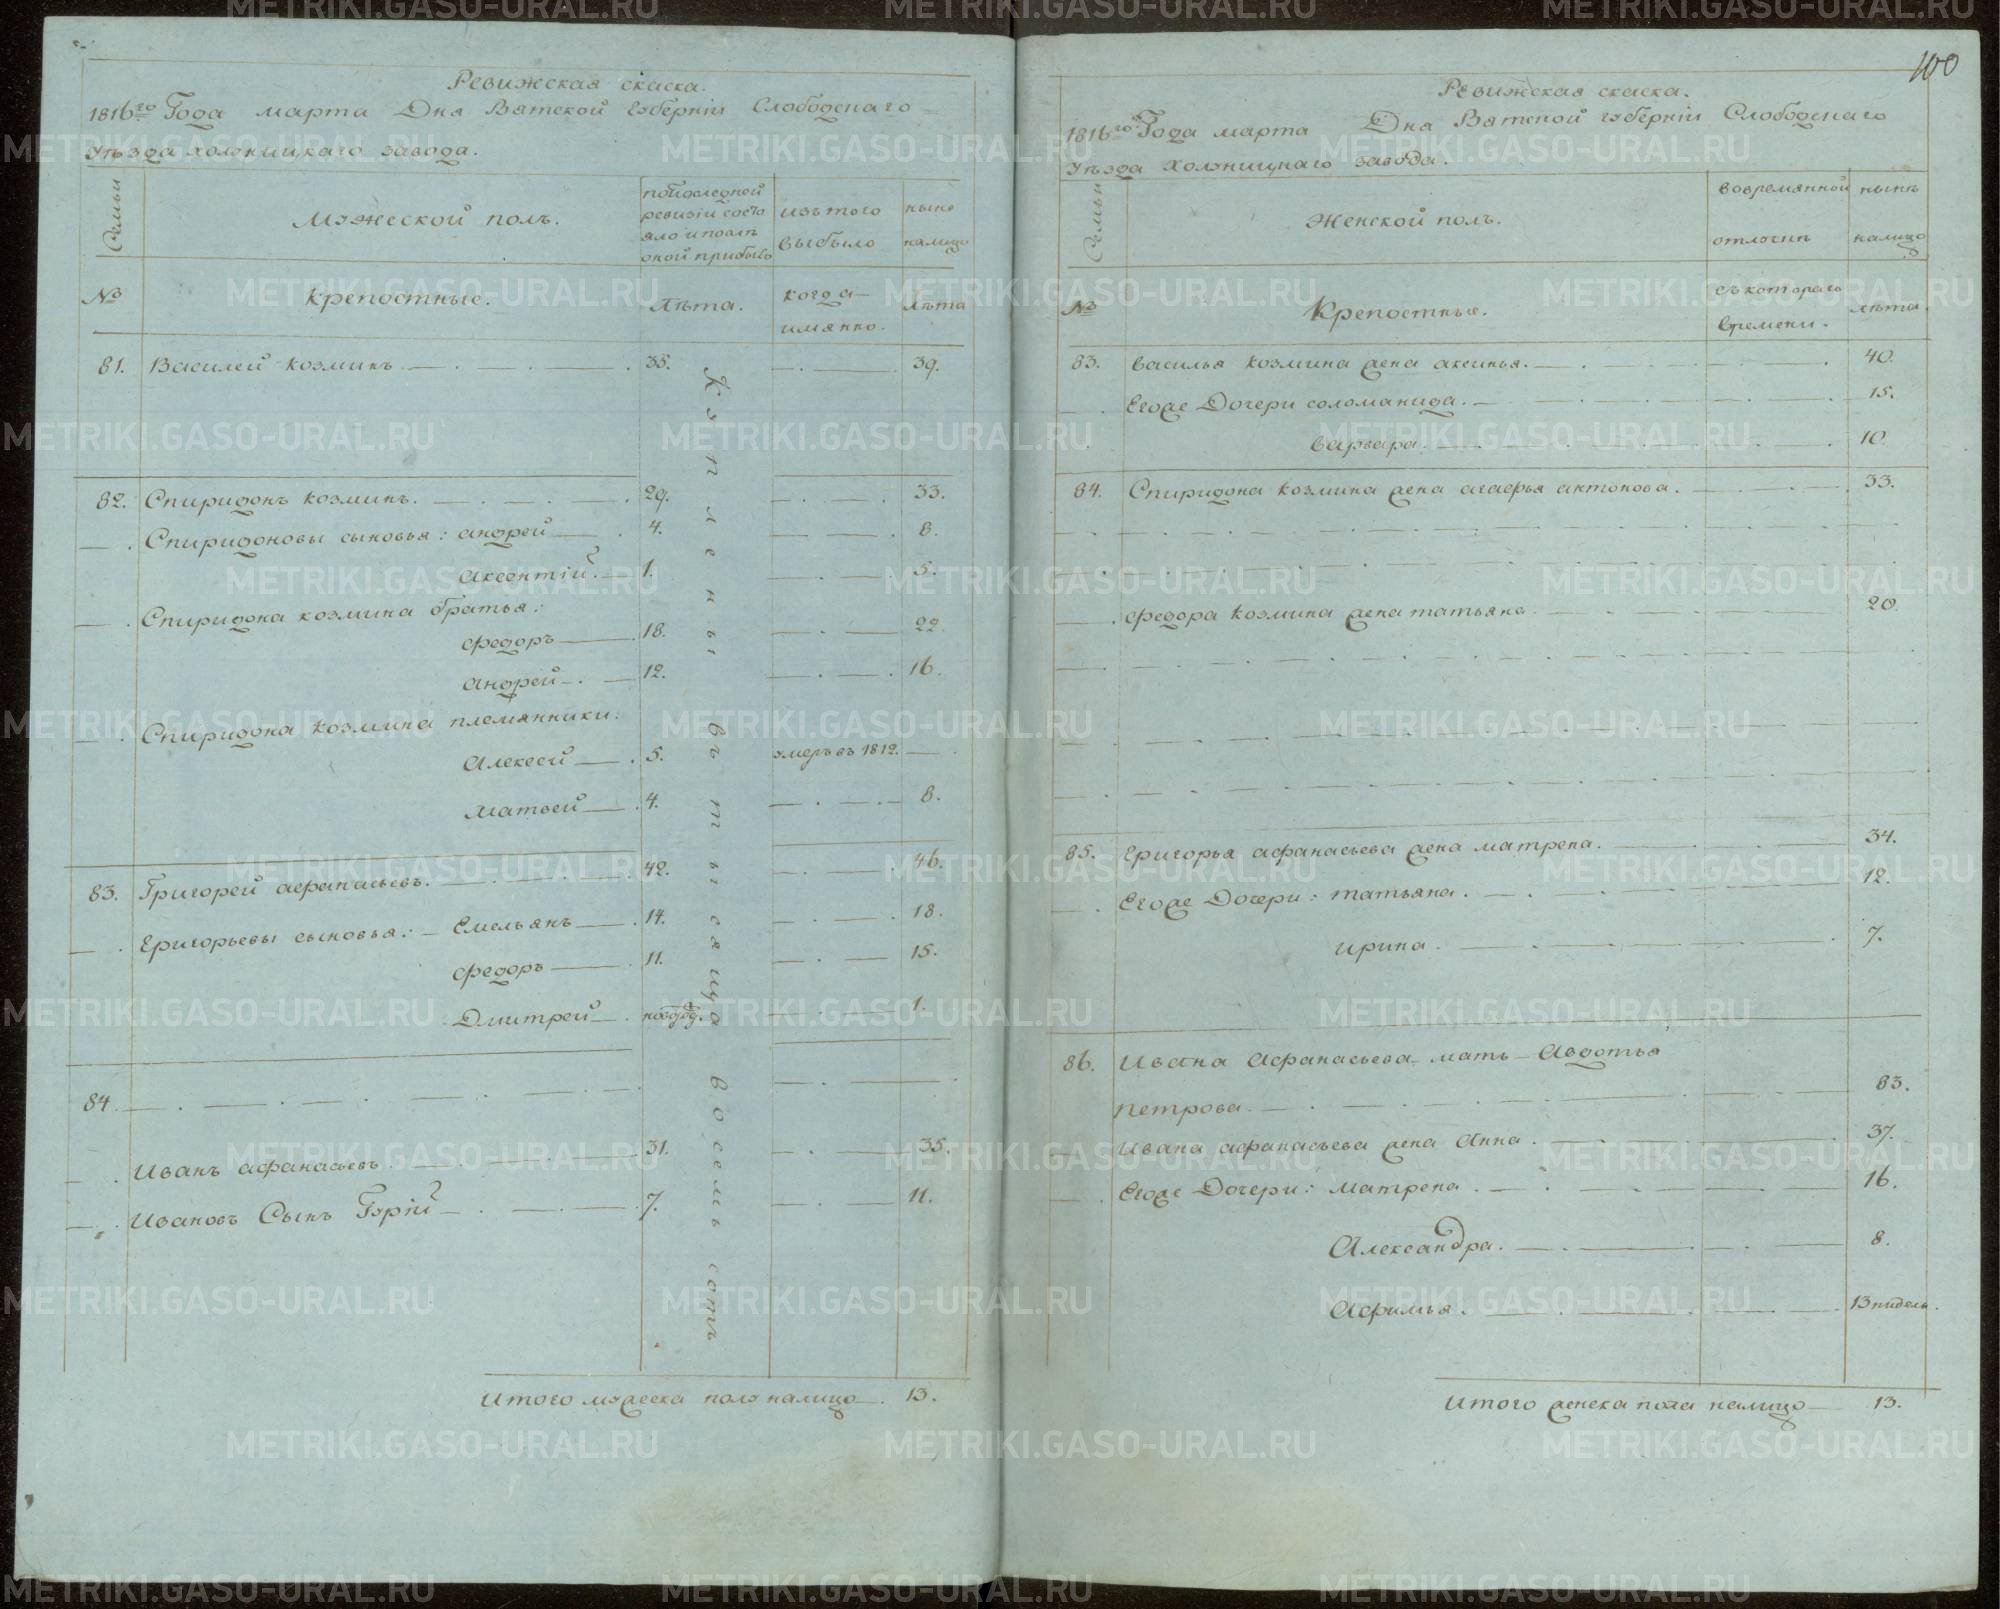 Ревижская скаска.
1816го Года марта Дня Вятской губерніи Слободскаго
уѣзда холуницкаго завода.
Семьи
Мужеской полъ.
попоследней ревизіи состояло ипослѣ оной прибыло
изътого выбыло
ныне налицо
№
Крепостные.
Лѣта.
когда имянно.
лѣта
81. Василей козминъ. 35. 39.
82. Спиридонъ козминъ. 29. 33.
Спиридоновы сыновья: андрей 4. 8.
Аксентій. 1. 5.
Спиридона козмина братья:
федоръ 18. 22.
андрей 12. 16.
Спиридона козмина племянники:
Алексей 5. умеръ въ 1812.
матвей 4. 8.
83. Григорей афанасьевъ. 42. 46.
Григорьевы сыновья: Емельянъ 14. 18.
федоръ 11. 15.
Дмитрей 1.
84.
Иванъ афанасьевъ. 31. 35.
Ивановъ Сынъ Гурій 7. 11.
Куплены въ тысяща восемь сотъ
Итого мужеска полу налицо 13.
100
Ревижская скаска.
1816го Года марта Дня Вятской губерніи Слободскаго
уѣзда Холуницкаго завода.
Семьи
Женской полъ.
вовремянной отлучкѣ
нынѣ налицо
№
Крепостные.
съкотораго времени.
лѣта.
83. василья козмина жена аксинья. 40.
Егоже Дочери соломанида. 15.
варвара. 10.
84. Спиридона козмина жена агафья антонова. 33.
федора козмина жена татьяна. 20.
85. Григорья афанасьева жена матрена. 34.
Егоже Дочери: татьяна. 12.
ирина. 7.
86. Ивана Афанасьева мать Авдотья
петрова. 83.
Ивана афанасьева жена Анна. 37.
Егоже Дочери: матрена. 16.
Александра. 8.
Афимья. 13 нидель.
Итого женска пола налицо 13.
METRIKI.GASO-URAL.RU